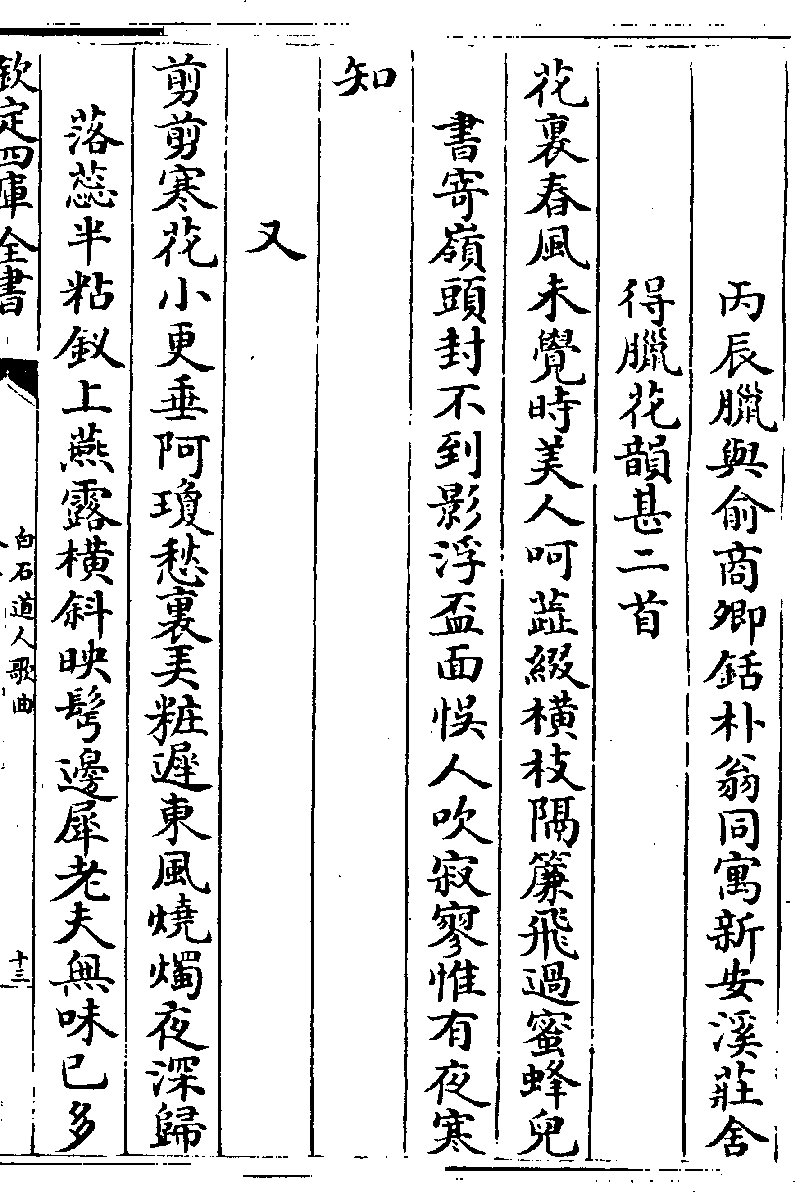 丙辰臘與俞商卿銛朴翁同寓新安溪莊舍
得臘花韻甚二首
花裏春風未覺時美人呵蕋綴橫枝隔簾飛過蜜蜂兒
書寄嶺頭封不到影浮盃面悞人吹寂寥惟有夜寒
知
又
剪剪寒花小更垂阿瓊愁裏弄粧遲東風燒燭夜深歸
落蕊半粘釵上燕露橫斜映鬂邊犀老夫無味已多
欽定四庫全書
白石道人歌曲
十三